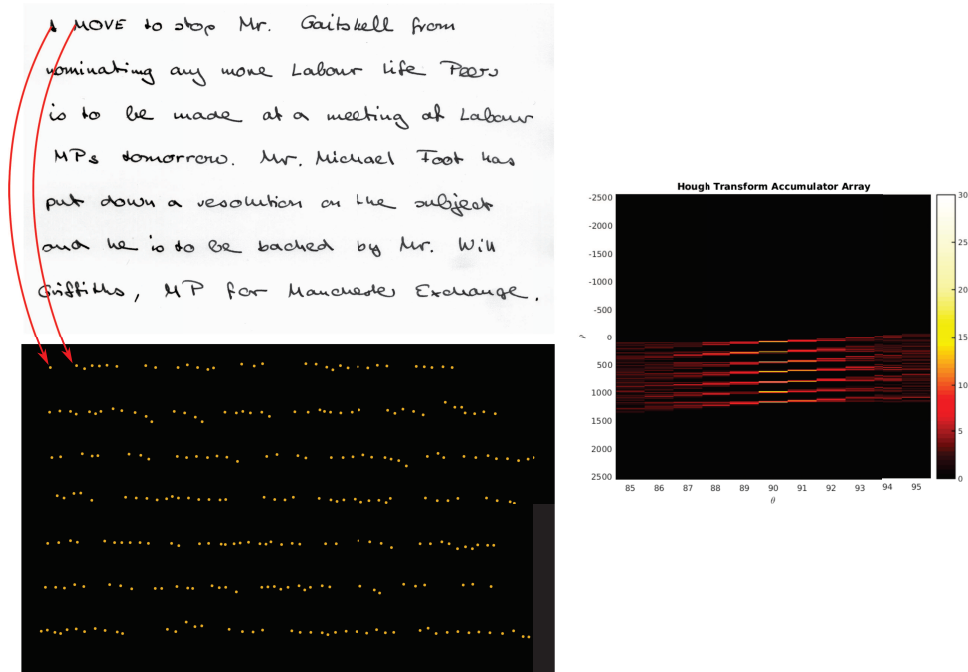 A MOVE to stop Mr. Gaitskell from
nominating any more Labour Life Peers
is to be made at a meeting of Labour
MPs tomorrow. Mr. Michael Foot has
put down a resolution on the subject
and he is to be backed by Mr. Will
Griffiths, MP for Manchester Exchange.
Hough Transform Accumulator Array
-2500
-2000
-1500
-1000
-500
0
500
1000
1500
2000
2500
ρ
85 86 87 88 89 90 91 92 93 94 95
θ
30
25
20
15
10
5
0